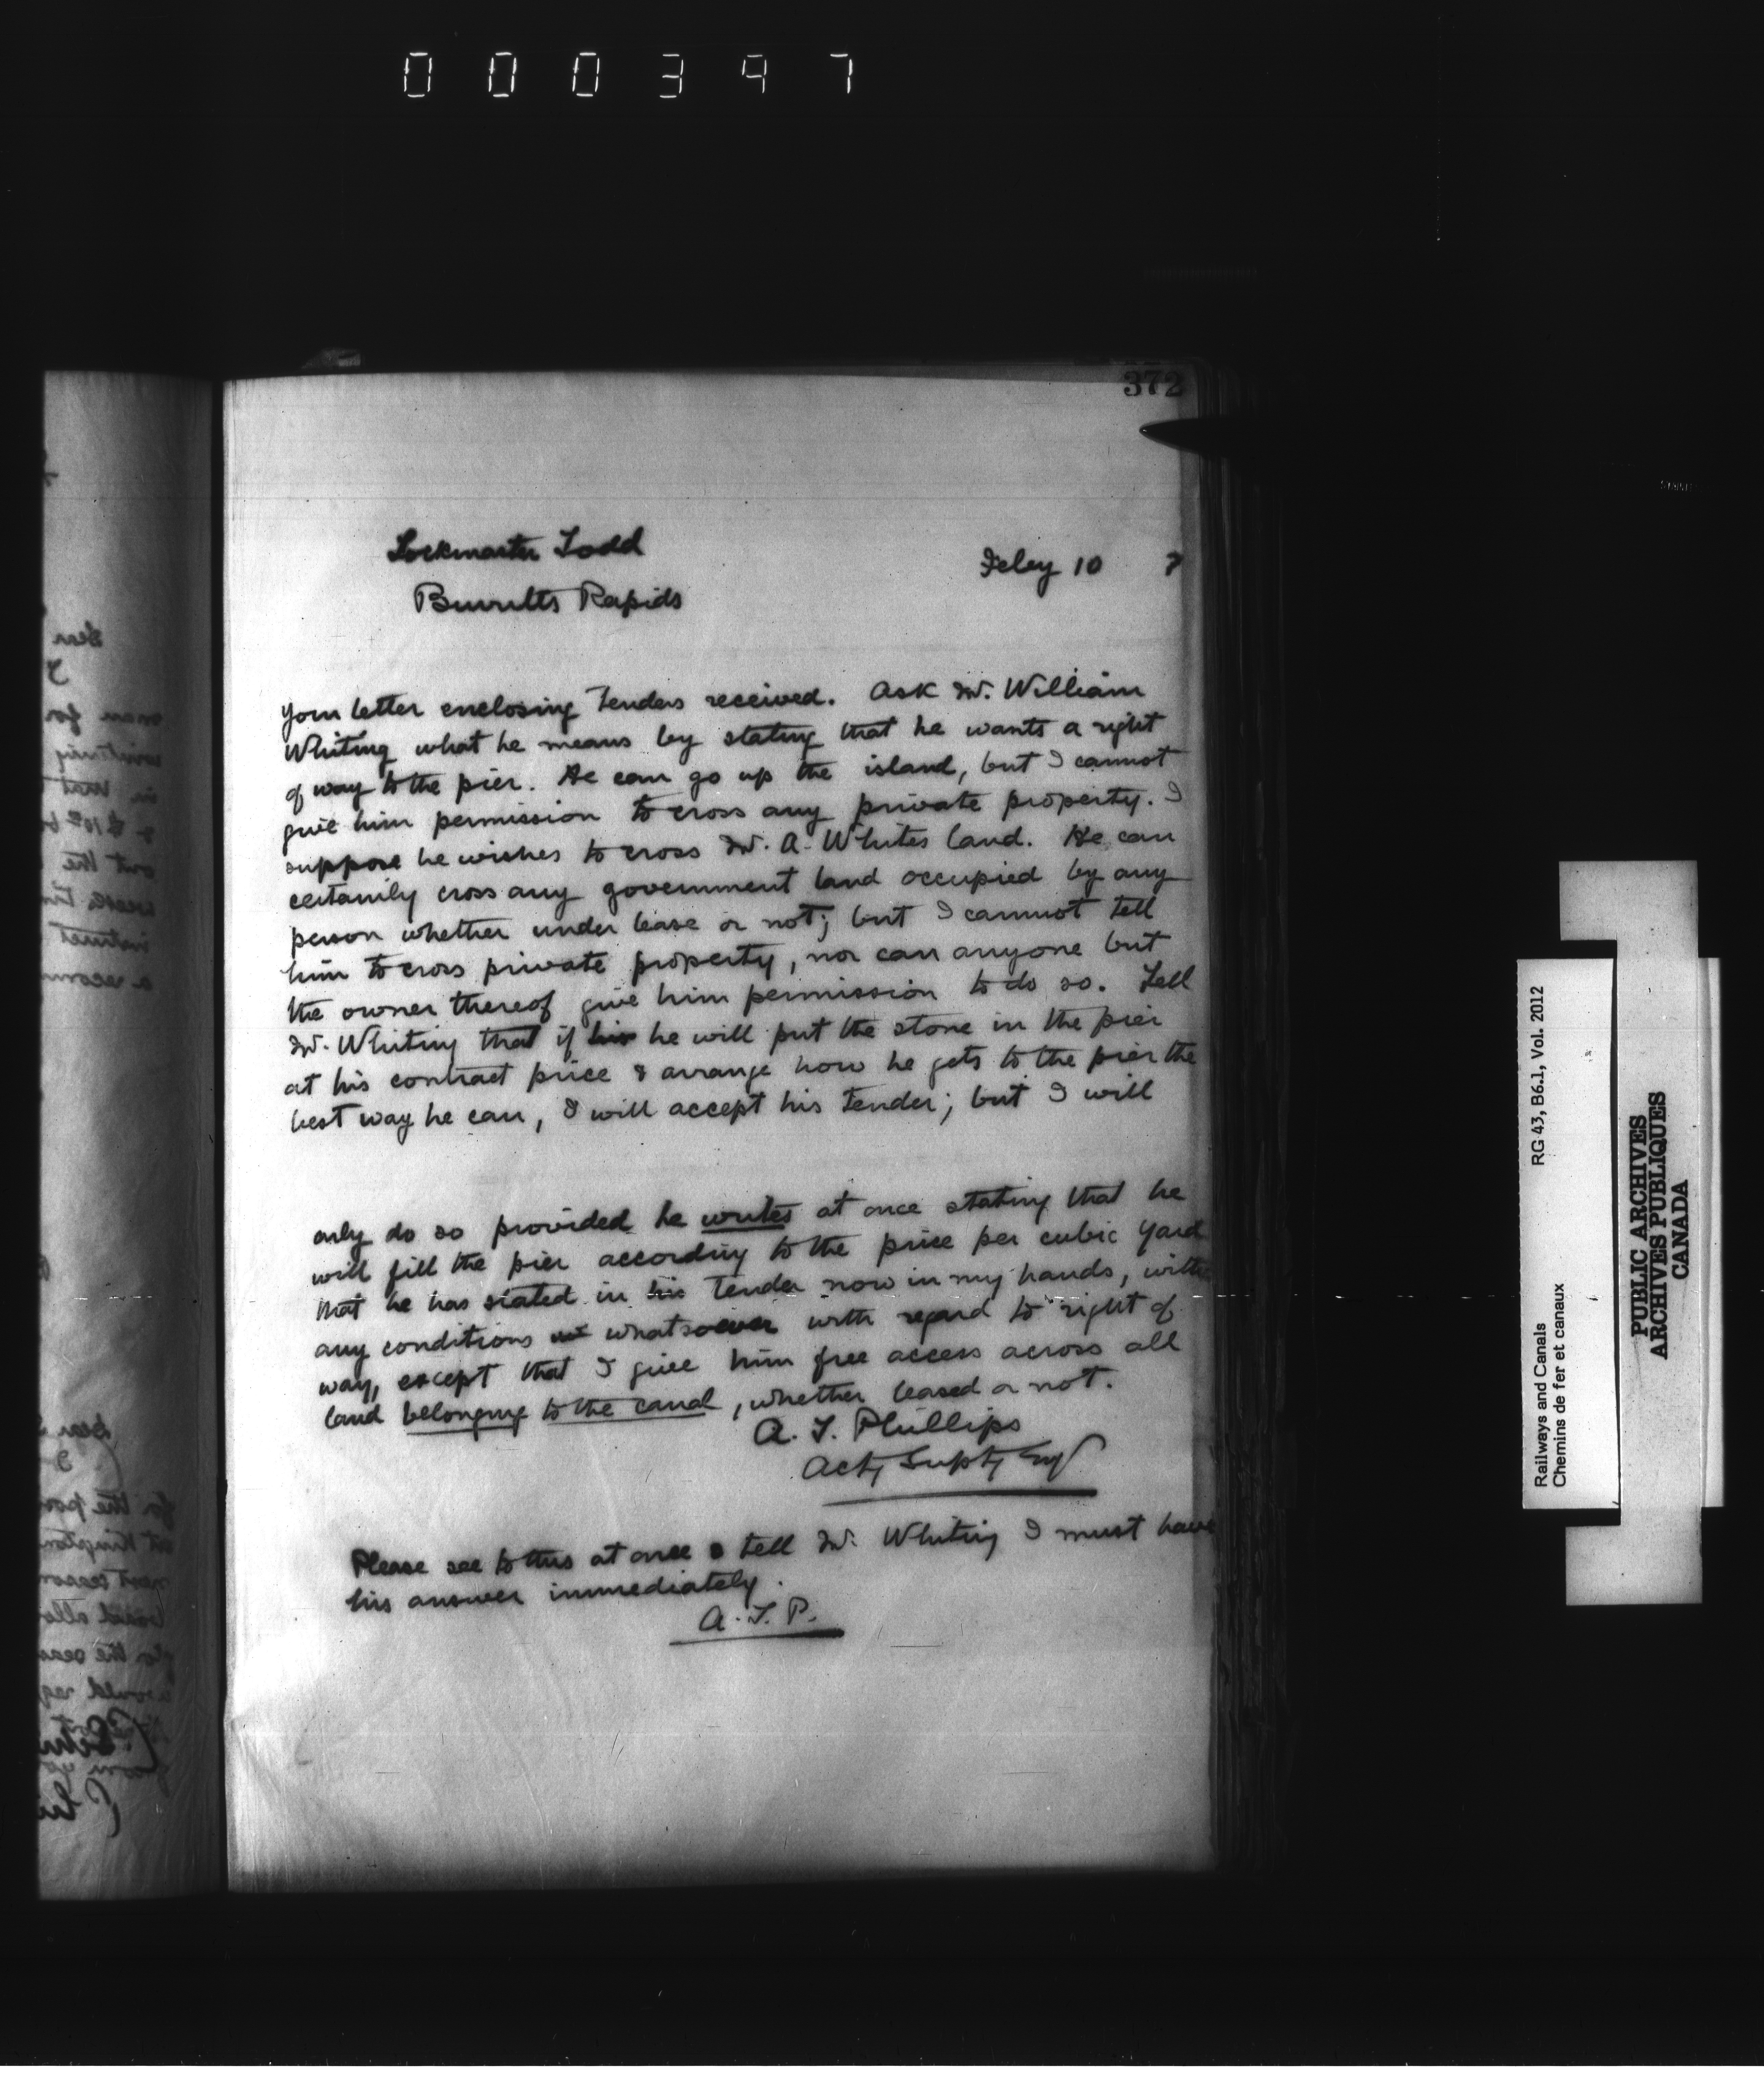 000397
372
Lockmaster Todd
Feby 10 7
Burritts Rapids
Your letter enclosing Tenders received. Ask Mr. William
Whiting what he means by stating that he wants a right
of way to the pier. He can go up the island, but I cannot
give him permission to cross any private property. I
suppose he wishes to cross Mr. A. Whites land. He can
certainly cross any government land occupied by any
person whether under lease or not; but I cannot tell
him to cross private property, nor can anyone but
the owner thereof give him permission to do so. Tell
Mr. Whiting that if his he will put the stone in the pier
at his contract price & arrange how he gets to the pier the
best way he can, I will accept his Tender; but I will
only do so provided he writes at once stating that he
will fill the pier according to the price per cubic yard
that he has stated in his Tender now in my hands, witho
any conditions whatsoever with regard to right of
way, except that I give him free access across all
land belonging to the canal, whether leased or not.
A. T. Phillips
Actg Suptg Eng
Please see to this at once & tell Mr. Whiting I must have
his answer immediately.
A. T. P.
Railways and Canals RG 43, B6.1, Vol. 2012
Chemins de fer et canaux
PUBLIC ARCHIVES
ARCHIVES PUBLIQUES
CANADA